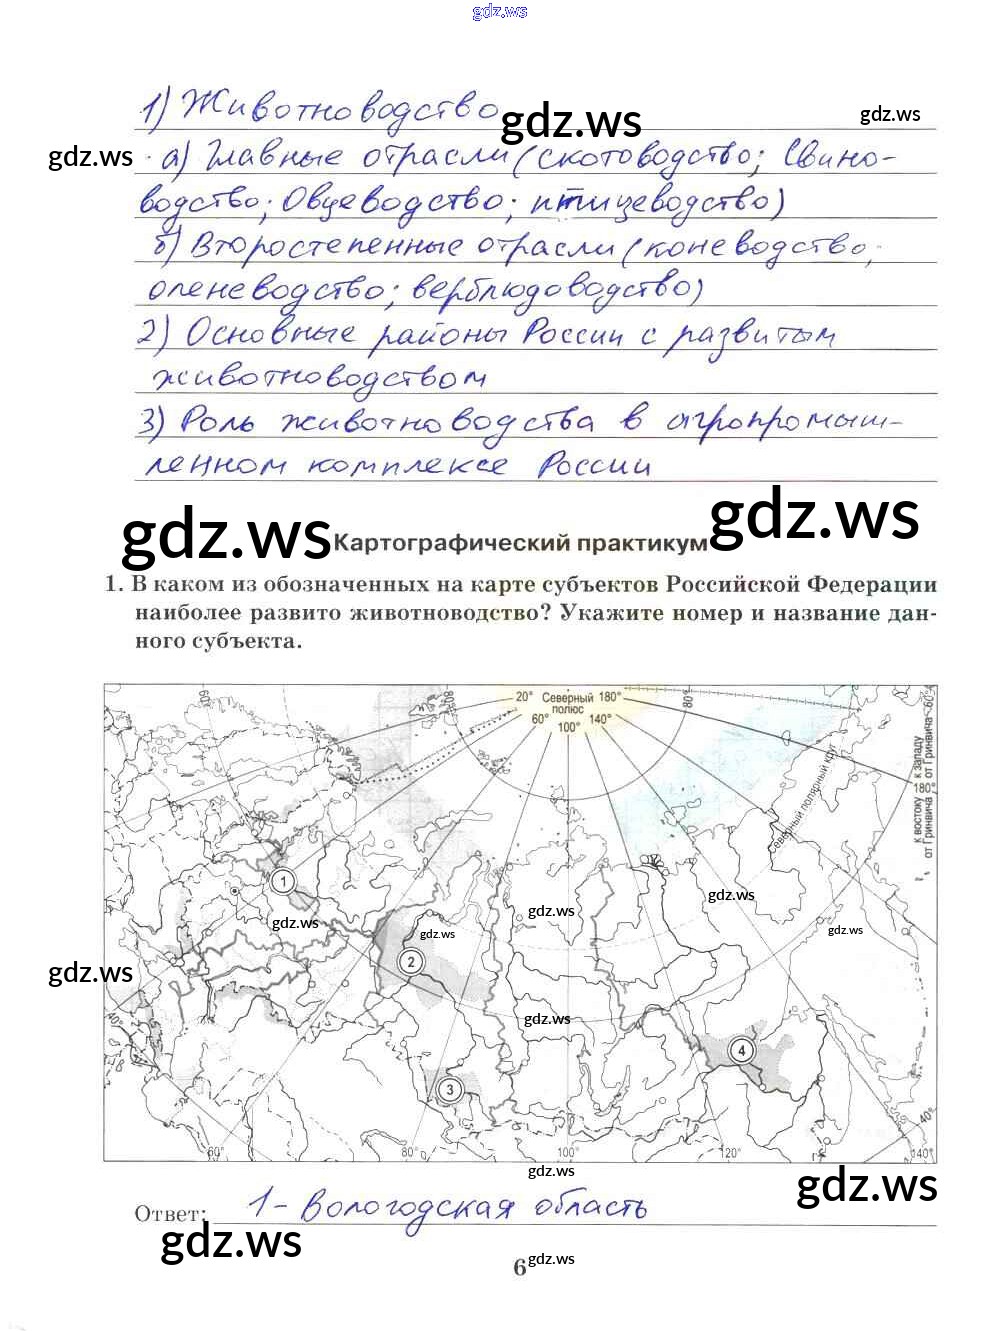 gdz.ws
1) Животноводство
gdz.ws
gdz.ws
gdz.ws
а) Главные отрасли (скотоводство; Свино-
водство; Овцеводство; птицеводство)
б) Второстепенные отрасли (коневодство;
оленеводство; верблюдоводство)
2) Основные районы России с развитым
животноводством
3) Роль животноводства в агропромыш-
ленном комплексе России
gdz.ws
gdz.ws
Картографический практикум
1. В каком из обозначенных на карте субъектов Российской Федерации
наиболее развито животноводство? Укажите номер и название дан-
ного субъекта.
60°
80°
20° Северный 180°
полюс
60° 100° 140°
80°
60°
к западу от Гринвича
180°
к востоку от Гринвича
Северный полярный круг
1
gdz.ws
gdz.ws
gdz.ws
gdz.ws
gdz.ws
2
gdz.ws
gdz.ws
4
3
40°
40°
60°
80°
100°
120°
140°
gdz.ws
gdz.ws
Ответ: 1 - Вологодская область
gdz.ws
6
gdz.ws